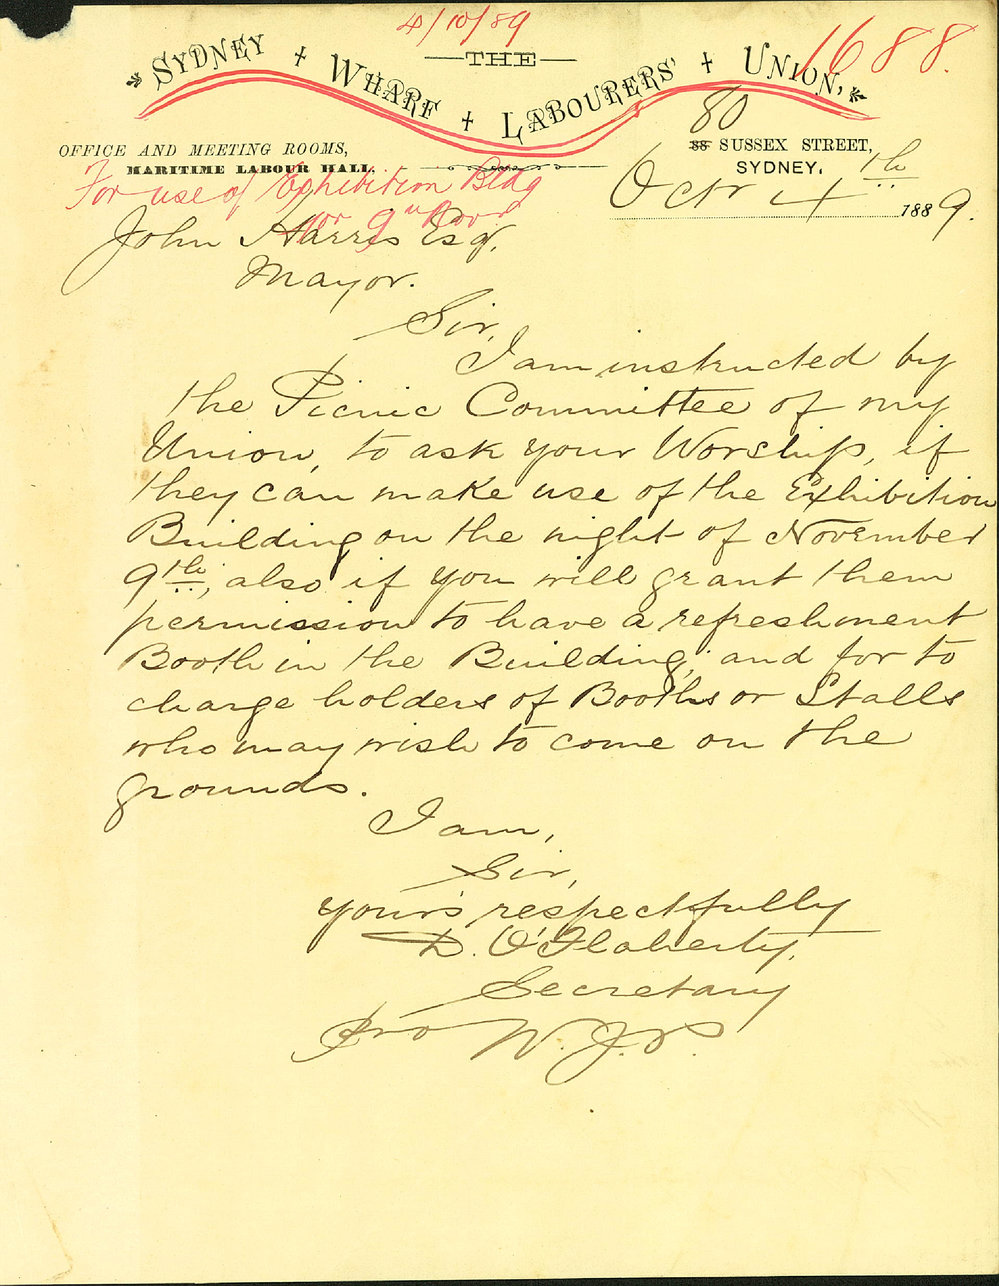 4/10/89
1688.
THE
SYDNEY WHARF LABOURERS' UNION,
OFFICE AND MEETING ROOMS,
MARITIME LABOUR HALL,
80
88 SUSSEX STREET,
SYDNEY,
Octr 4th 1889.
For use of Exhibition Bldg
for 9th Novr
John Harris Esqr,
Mayor.
Sir,
I am instructed by
the Picnic Committee of my
Union, to ask your Worship, if
they can make use of the Exhibition
Building on the night of November
9th, also if you will grant them
permission to have a refreshment
Booth in the Building, and for to
charge holders of Booths or Stalls
who may wish to come on the
grounds.
I am,
Sir,
your's respectfully
D. O'Flaherty,
Secretary
Pro W. J. P.